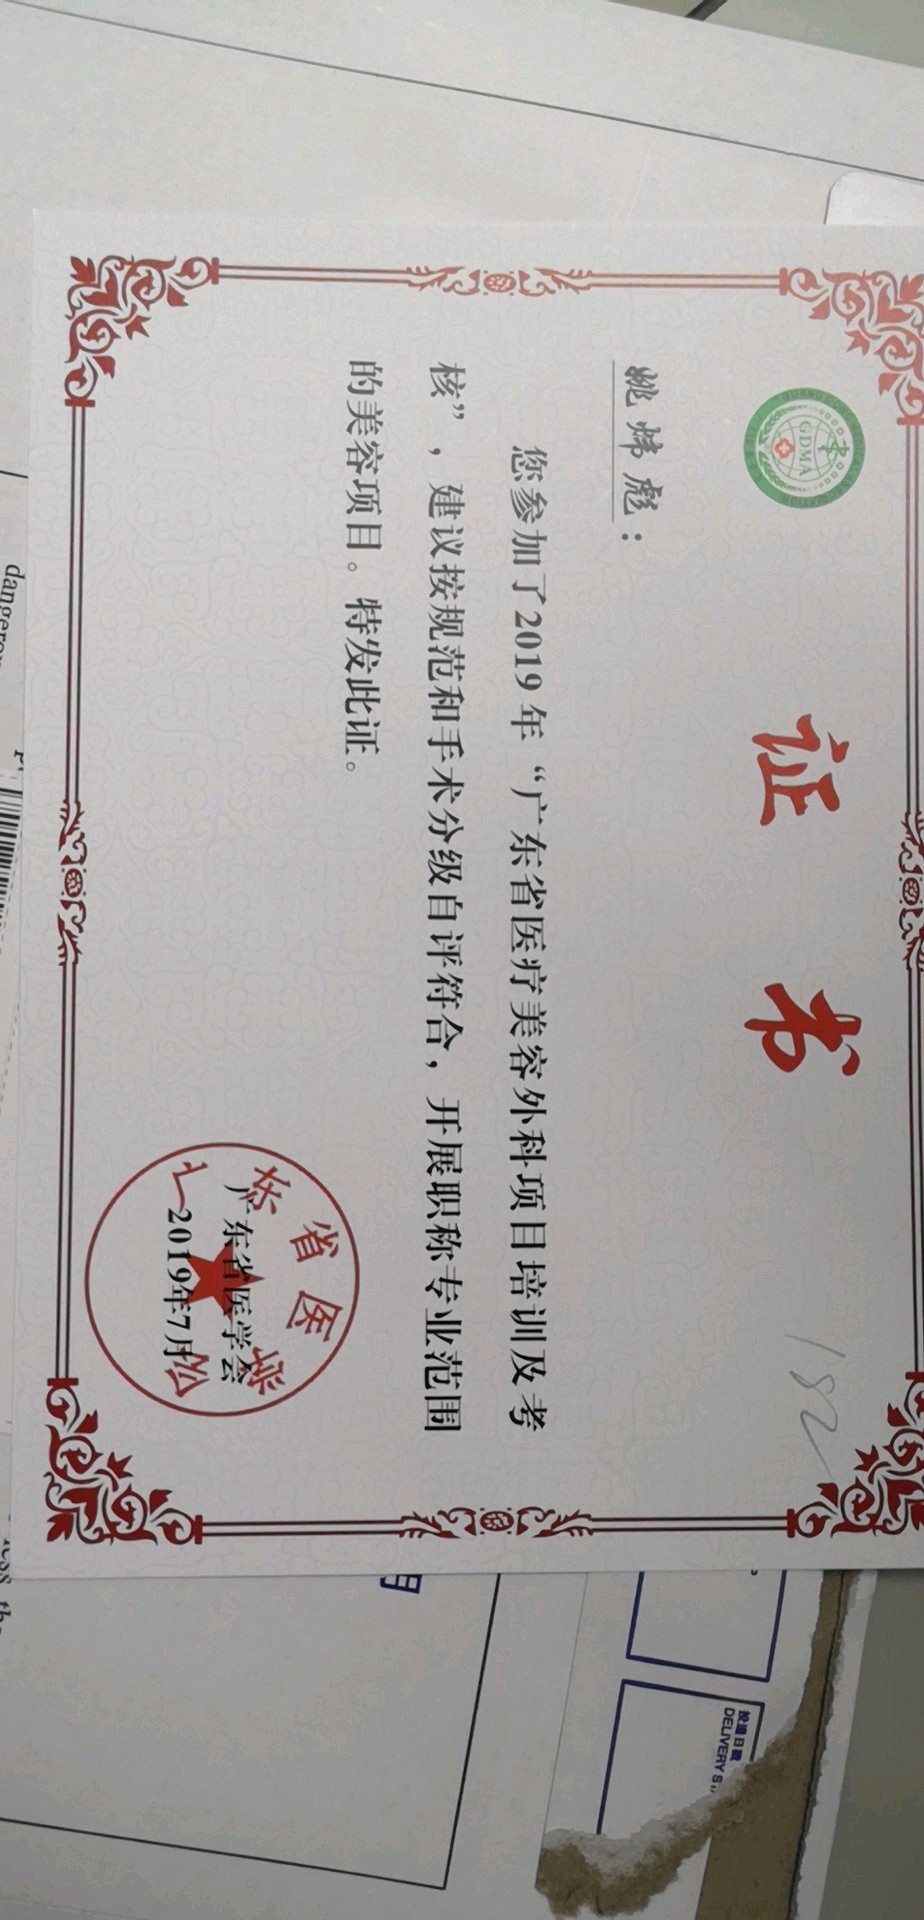 GDMA
证书
182
姚炜彪：
您参加了2019年“广东省医疗美容外科项目培训及考
核”，建议按规范和手术分级自评符合，开展职称专业范围
的美容项目。特发此证。
广东省医学会
广东省医学会
2019年7月
投递日戳
DELIVERY